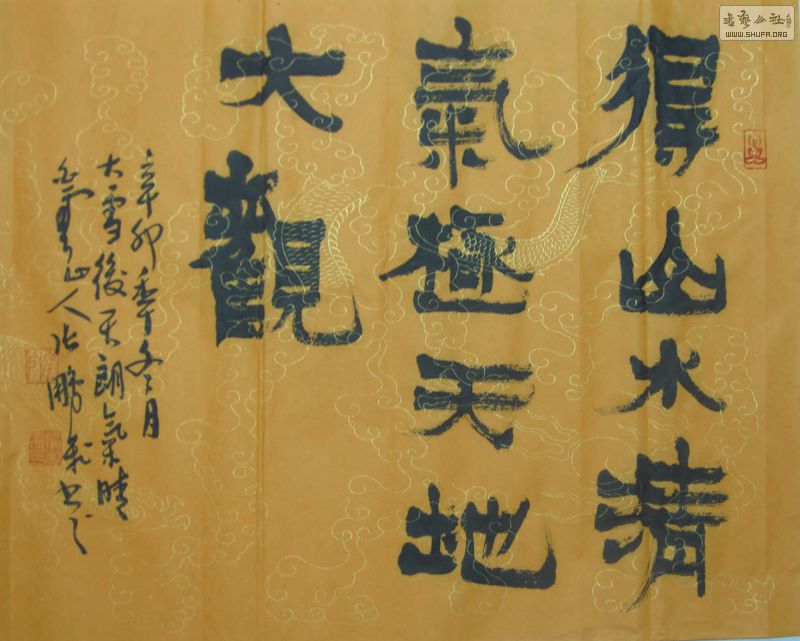 得山水清
氣極天地
大觀
辛卯秊冬月
大雪後天朗氣晴
山人张鵬書之
书艺公社
WWW.SHUFA.ORG